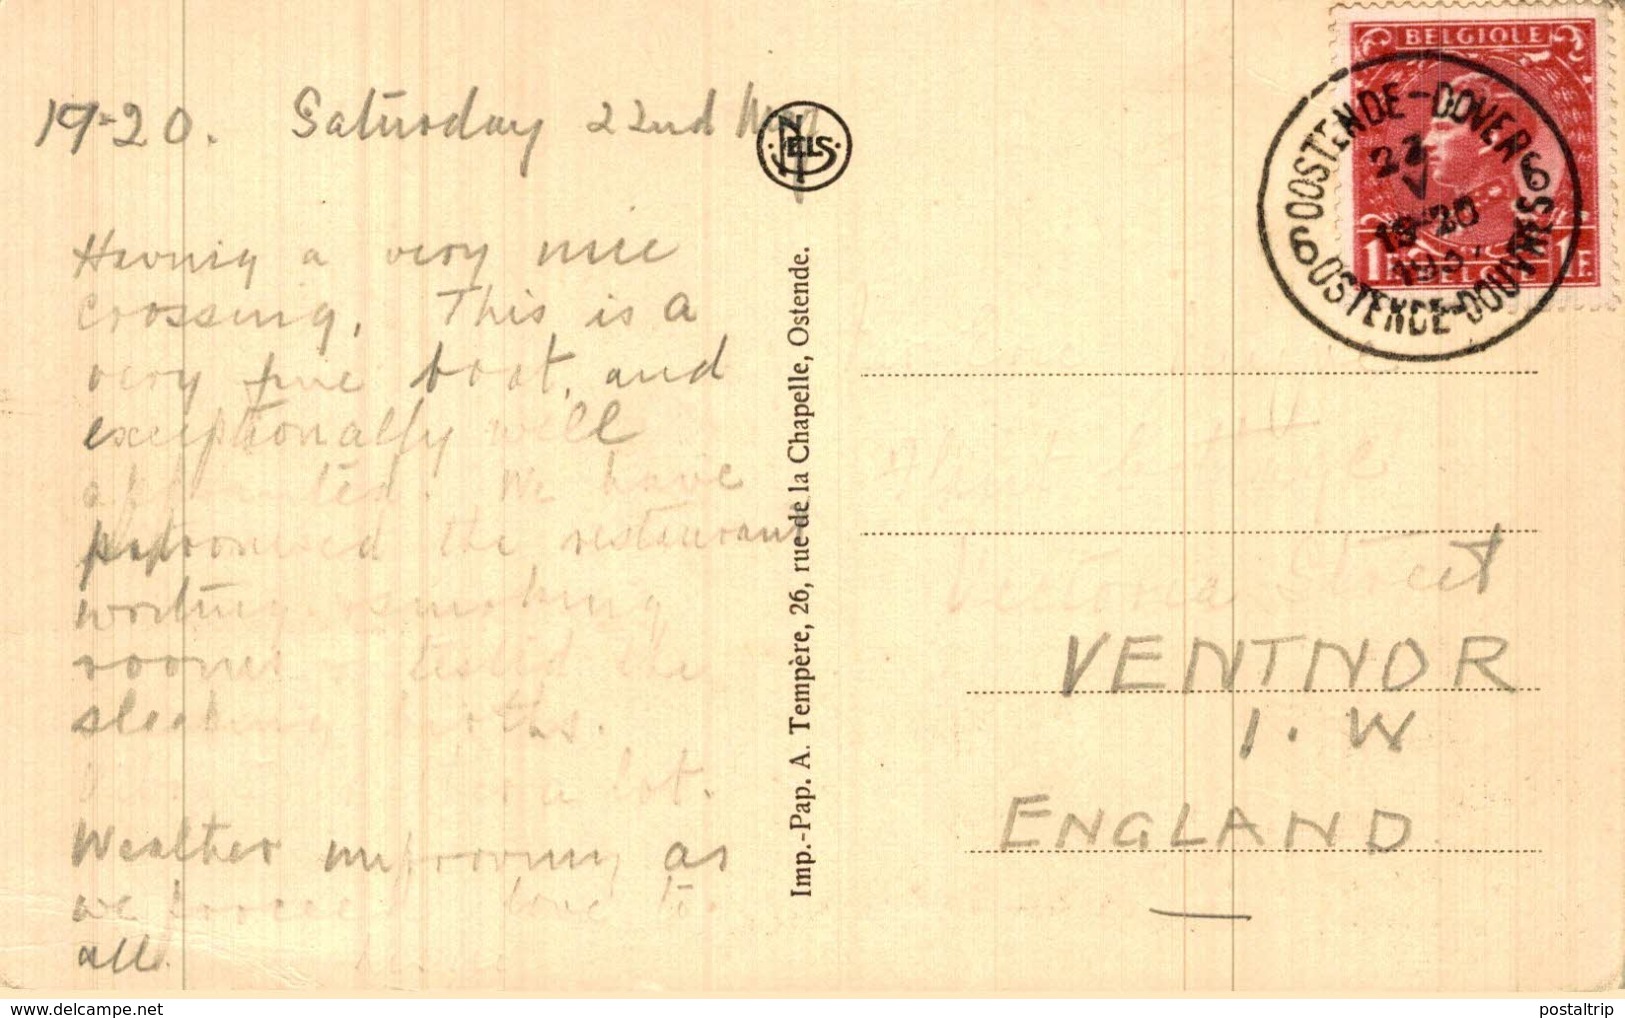 19-20. Saturday 22nd May
Having a very nice
crossing. This is a
very fine boat, and
exceptionally well
appointed. We have
patronised the restaurant
writing & smoking
rooms & tested the
sleeping berths.
lot.
Weather improving as
we proceed. Love to
all.
NELS
Imp.-Pap. A. Tempère, 26, rue de la Chapelle, Ostende.
BELGIQUE
1F BELGIE 1F
6 OOSTENDE-DOVER 6
22
V
19-20
1937
OSTENDE-DOUVRES
Cottage
Victoria Street
VENTNOR
I. W
ENGLAND
www.delcampe.net
postaltrip